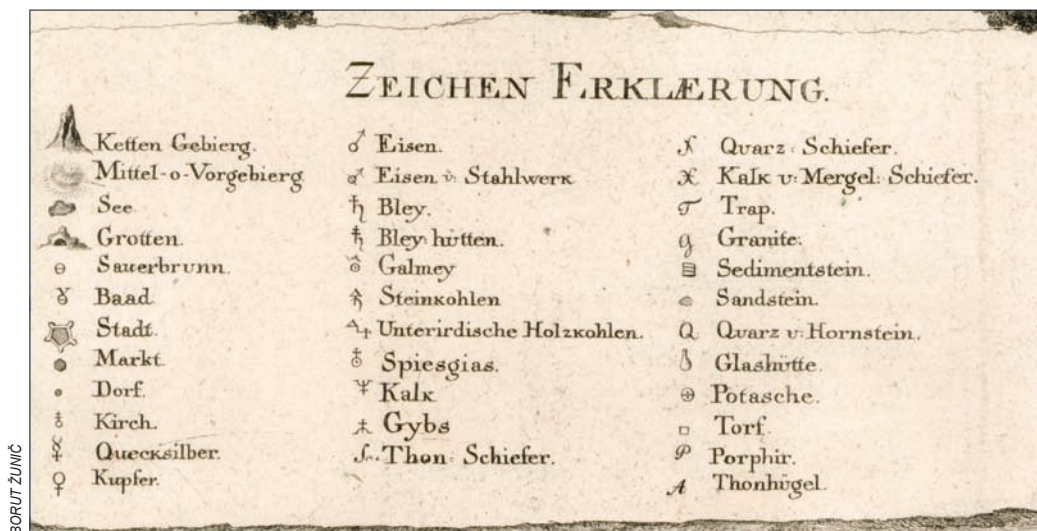 ZEICHEN ERKLÆRUNG.
Ketten Gebierg.
Mittel-o-Vorgebierg
See
Grotten.
Sauerbrunn.
Baad
Stadt.
Markt
Dorf.
Kirch.
Quecksilber.
Kupfer.
Eisen.
Eisen v: Stahlwerk
Bley.
Bley: hütten.
Galmey
Steinkohlen
Unterirdische Holzkohlen.
Spiesglas.
Kalk
Gybs
Thon: Schiefer.
Quarz: Schiefer.
Kalk v: Mergel: Schiefer.
Trap.
Granite.
Sedimentstein.
Sandstein.
Quarz v: Hornstein.
Glashütte.
Potasche.
Torf.
Porphir.
Thonhügel.
BORUT ŽUNIČ